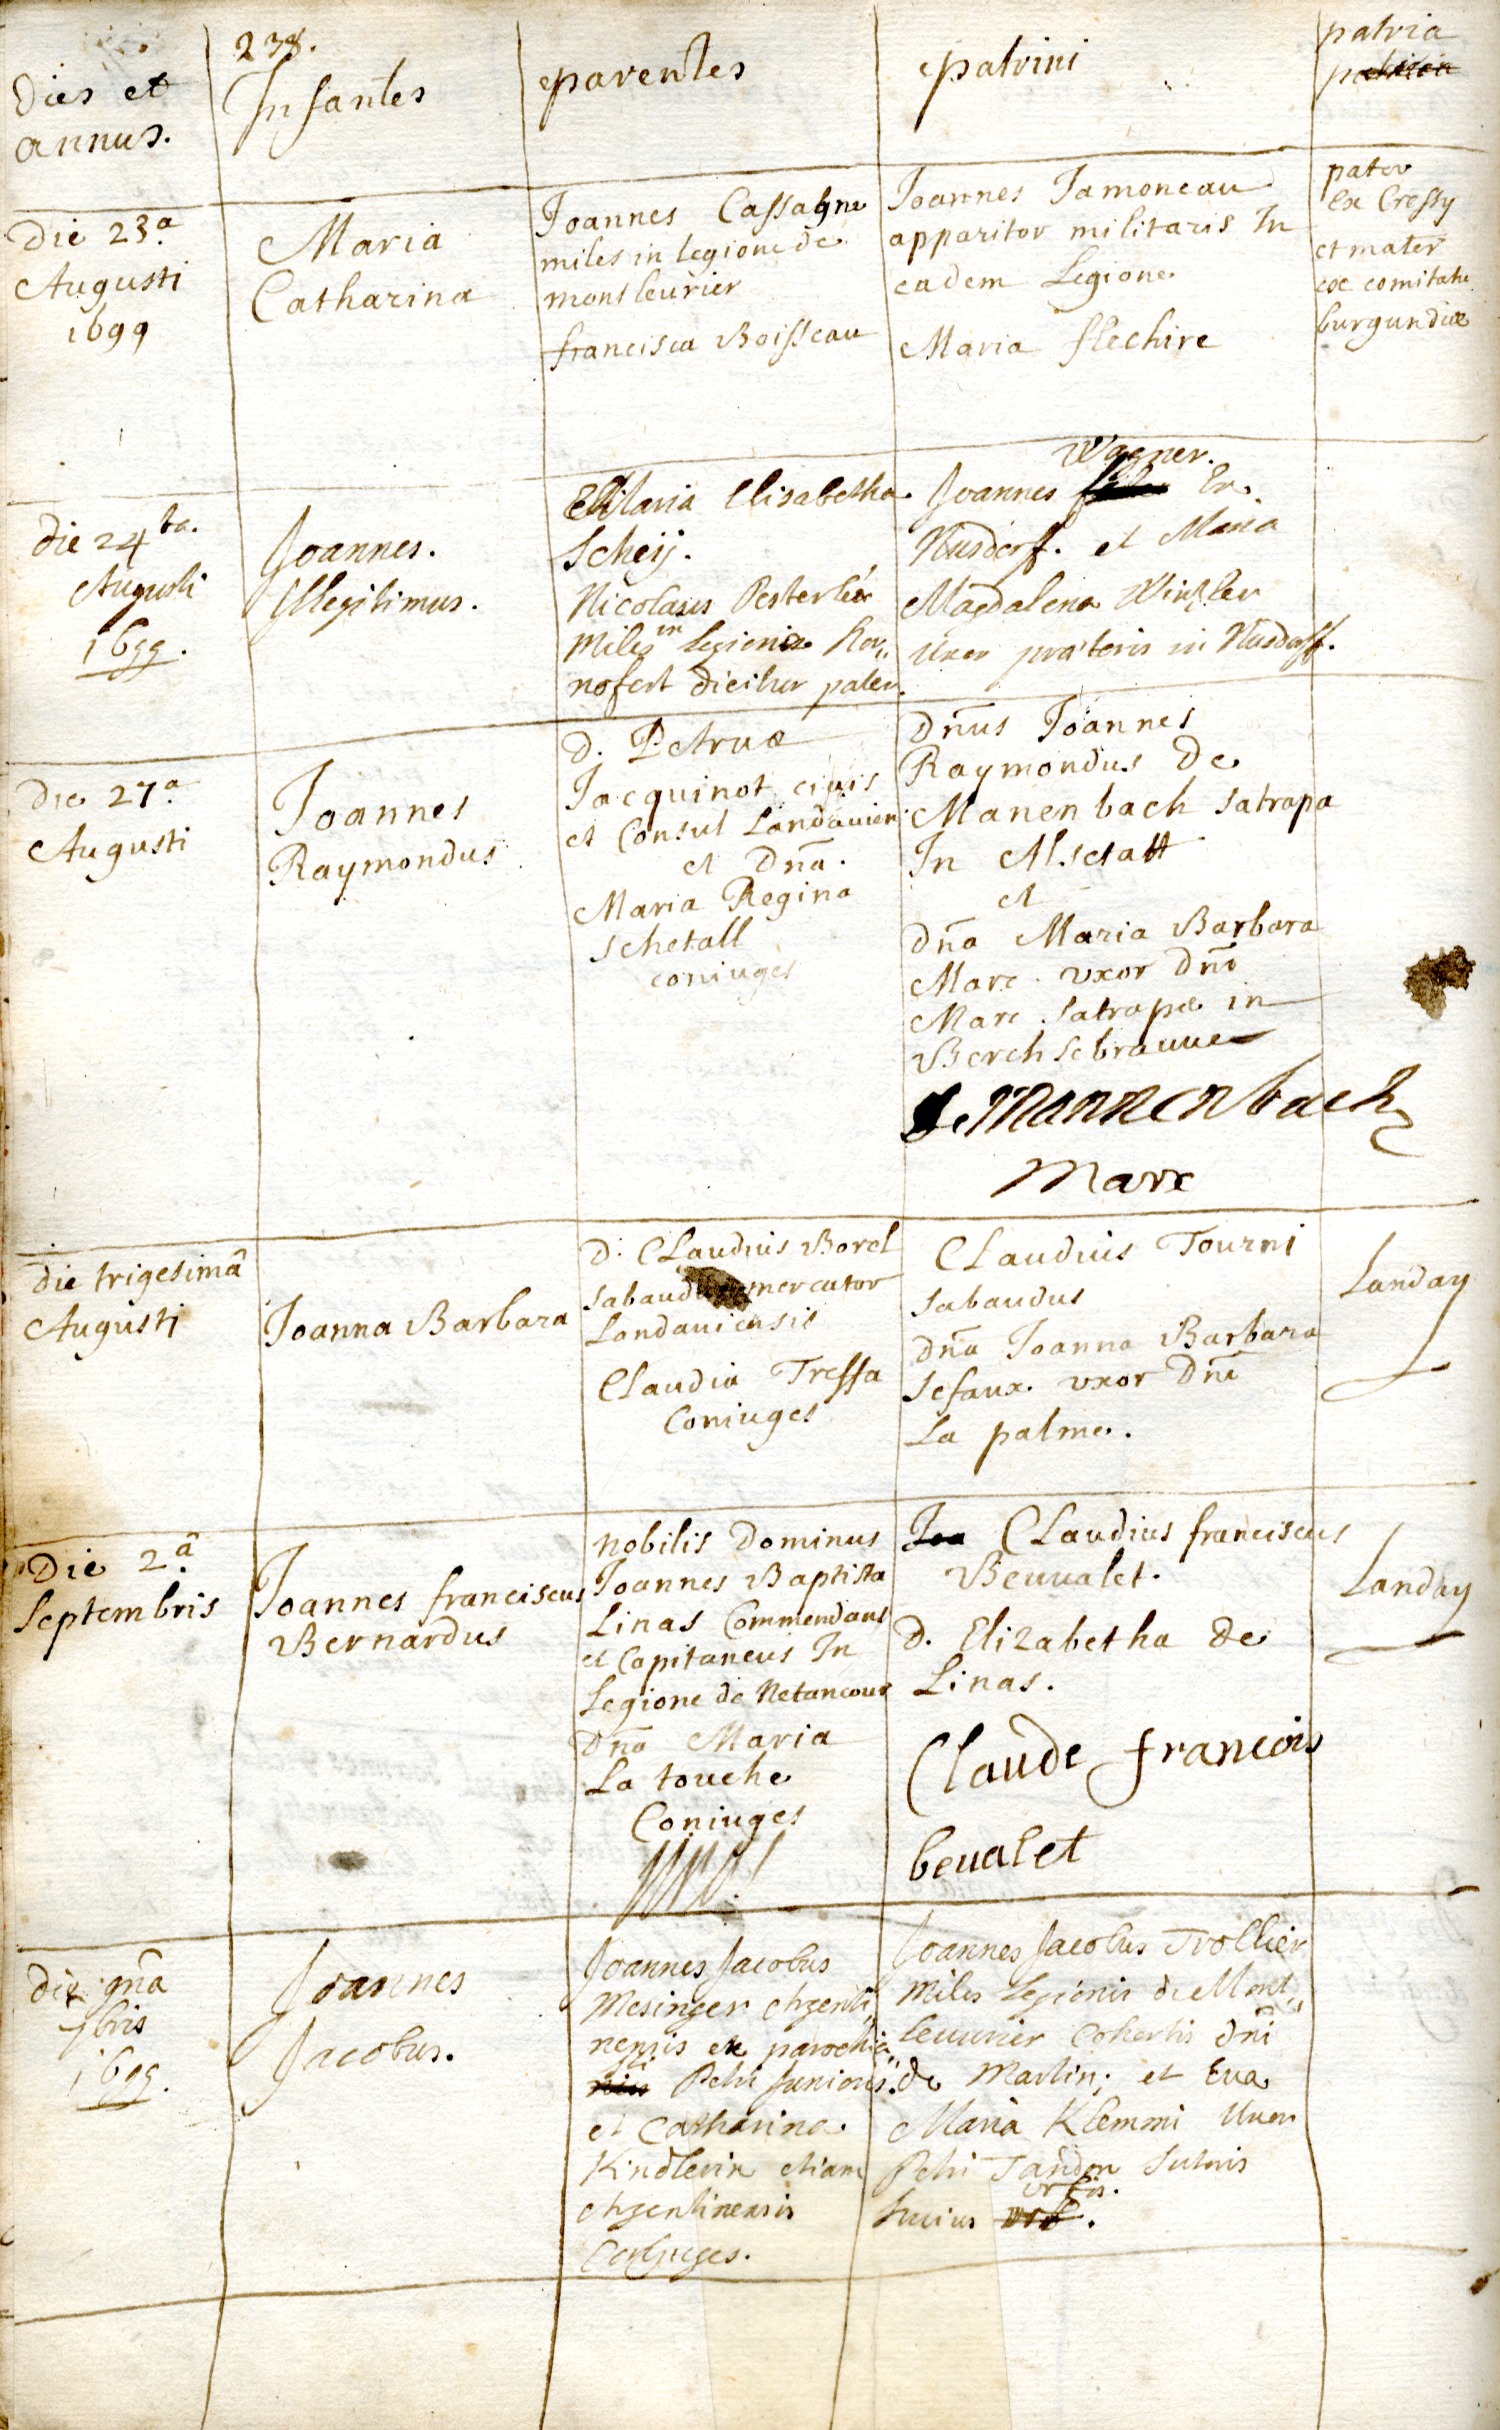 238.
Dies et
annus.
Infantes
parentes
patrini
patria
Die 23.a
Augusti
1699
Maria
Catharina
Joannes Cassagne
miles in legione de
montleurier
francisca Boisseau
Joannes Jamoneau
apparitor militaris In
eadem Legione
Maria flechire
pater
Ex Cressy
et mater
ex comitatu
burgundiae
die 24ta.
Augusti
1699.
Joannes.
Illegitimus.
Maria Elisabetha
Scheij.
Nicolaus
Miles in Legione
nofert dicitur pater.
Wagner.
Joannes Ex
Nusdorff. et Maria
Magdalena Winkler
Uxor praetoris in Nusdorff.
Die 27.a
Augusti
Joannes
Raymondus
D. Petrus
Jacquinot civis
et Consul Landavien
et Dna.
Maria Regina
Schetall
coniuges
Dnus Joannes
Raymondus De
Manenbach Satrapa
In
et
Dna Maria Barbara
Marc uxor Dni
Marc Satrapae in
de Mannenbach
Marx
die trigesimâ
Augusti
Joanna Barbara
D. Claudius Borel
mercator
Landaviensis
Claudia Tressa
Coniuges
Claudius Tourni
Sabaudus
Dna Joanna Barbara
Sefaux. uxor Dni
La palme.
Landay
Die 2.â
Septembris
Joannes franciscus
Bernardus
nobilis Dominus
Joannes Baptista
Linas Commendant
et Capitaneus In
Legione de Netancour
Dna Maria
La touche
Coniuges
Joa Claudius franciscus
Beuvalet.
D. Elizabetha de
Linas.
Claude francois
beualet
Landay
die
7bris
1699.
Joannes
Jacobus.
Joannes Jacobus
Mesinger Argenti„
nensis ex parochia
Sti Petri Junioris.
et Catharina
Kindlerin etiam
Argentinensis
Conjuges.
Joannes Jacobus Trollier
Miles Legionis de Mont„
leuurier Cohortis Dni
de Martin; et Eva
Maria Klemmi Uxor
Petri Sutoris
huius urbis.